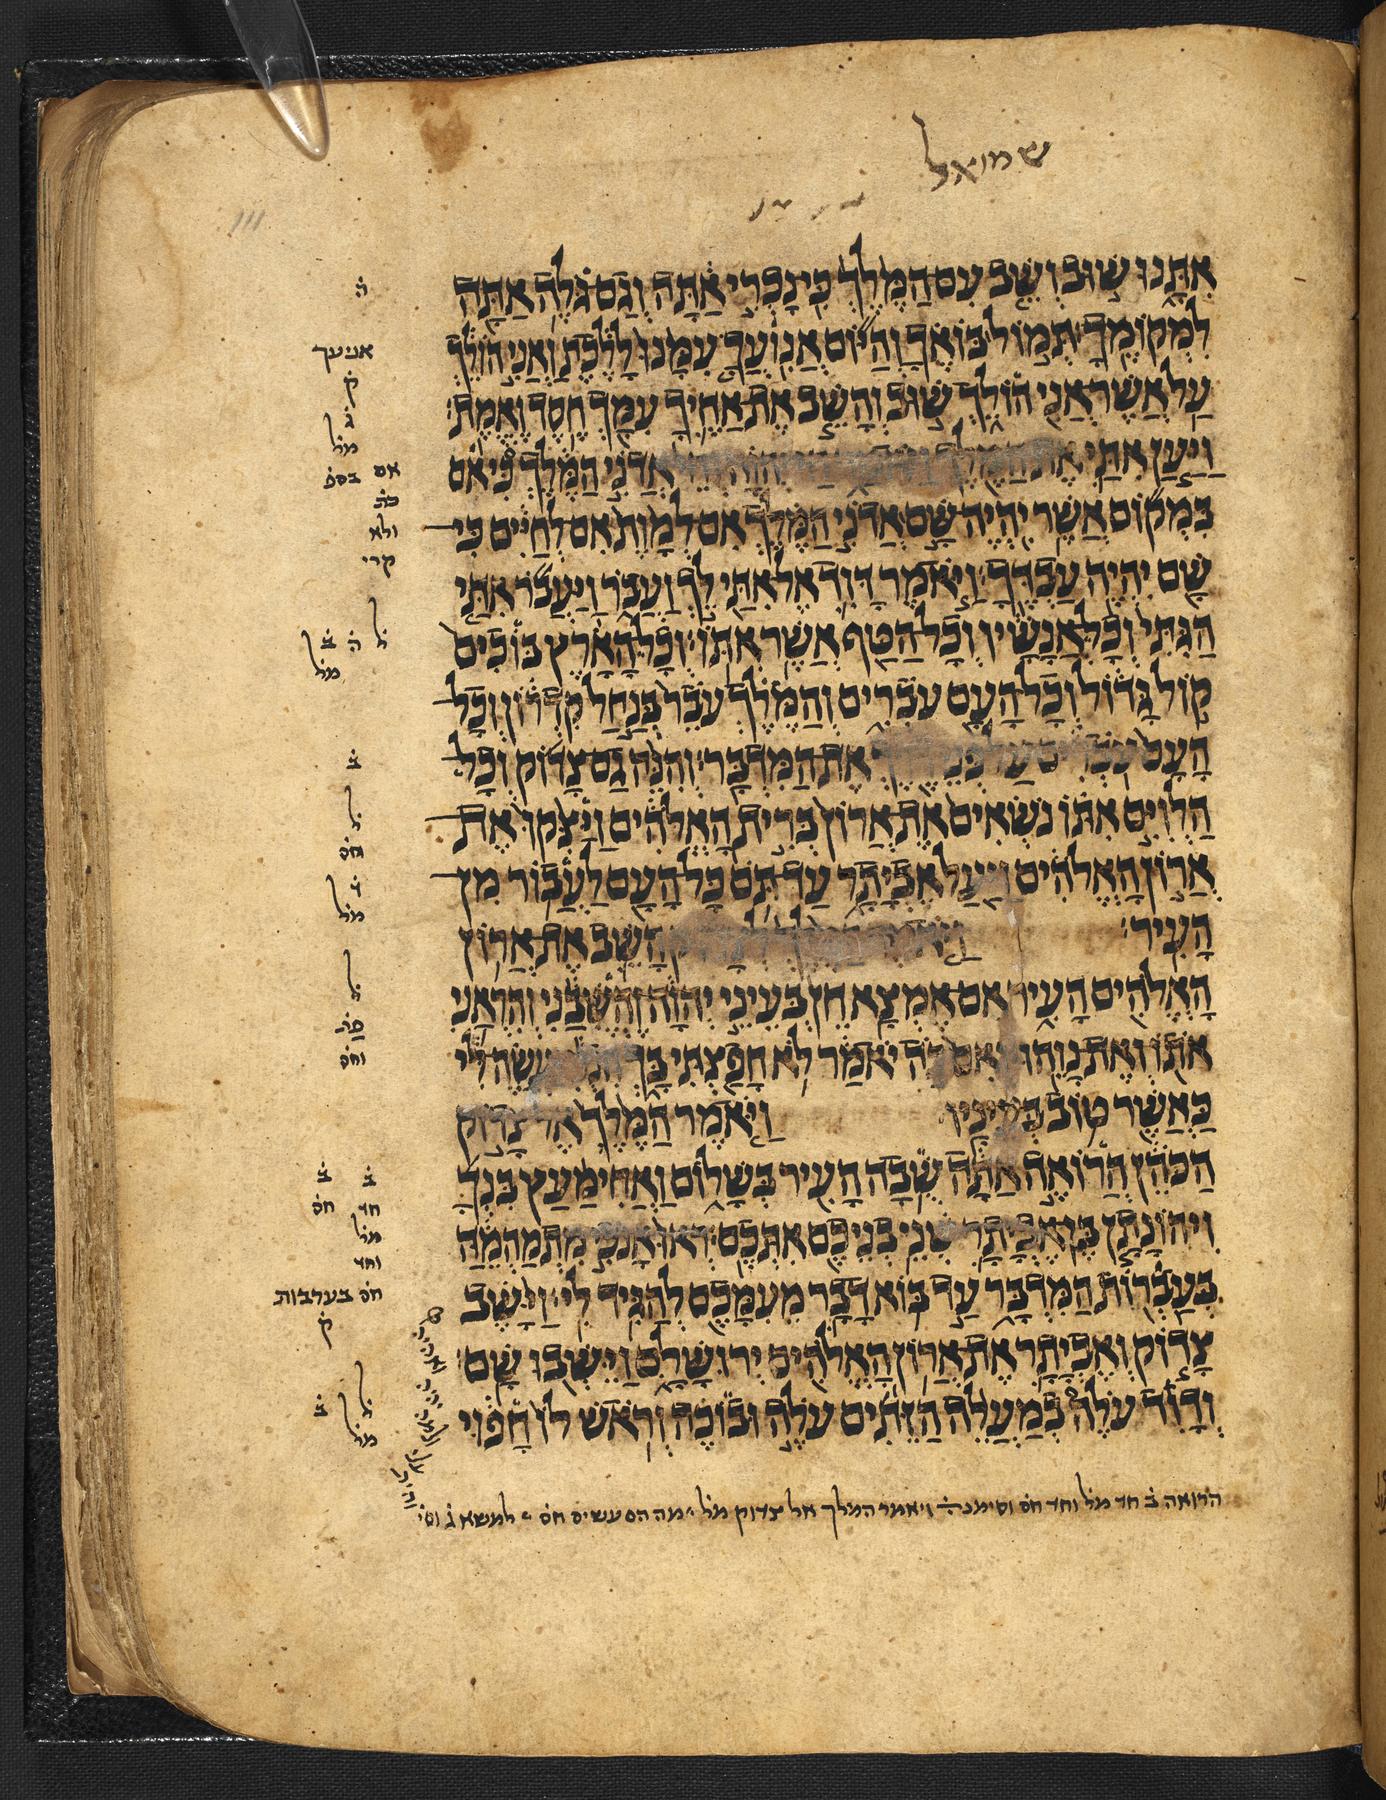 שמואל
אִתָּנוּ שׁוּב וְשֵׁב עִם הַמֶּלֶךְ כִּי נָכְרִי אַתָּה וְגַם גֹּלֶה אַתָּה
לִמְקוֹמֶךָ תְּמוֹל בּוֹאֶךָ וְהַיּוֹם אֲנִוֹעֲךָ עִמָּנוּ לָלֶכֶת וַאֲנִי הוֹלֵךְ
עַל אֲשֶׁר אֲנִי הוֹלֵךְ שׁוּב וְהָשֵׁב אֶת אַחֶיךָ עִמָּךְ חֶסֶד וֶאֱמֶת׃
וַיַּעַן אִתַּי אֶת הַמֶּלֶךְ אֲדֹנִי הַמֶּלֶךְ כִּי אִם
בִּמְקוֹם אֲשֶׁר יִהְיֶה שָּׁם אֲדֹנִי הַמֶּלֶךְ אִם לְמָוֶת אִם לְחַיִּים כִּי
שָׁם יִהְיֶה עַבְדֶּךָ׃ וַיֹּאמֶר דָּוִד אֶל אִתַּי לֵךְ וַעֲבֹר וַיַּעֲבֹר אִתַּי
הַגִּתִּי וְכָל אֲנָשָׁיו וְכָל הַטַּף אֲשֶׁר אִתּוֹ׃ וְכָל הָאָרֶץ בּוֹכִים
קוֹל גָּדוֹל וְכָל הָעָם עֹבְרִים וְהַמֶּלֶךְ עֹבֵר בְּנַחַל קִדְרוֹן וְכָל
הָעָם עֹבְרִים עַל פְּנֵי דֶרֶךְ אֶת הַמִּדְבָּר׃ וְהִנֵּה גַם צָדוֹק וְכָל
הַלְוִיִּם אִתּוֹ נֹשְׂאִים אֶת אֲרוֹן בְּרִית הָאֱלֹהִים וַיַּצִּקוּ אֶת
אֲרוֹן הָאֱלֹהִים וַיַּעַל אֶבְיָתָר עַד תֹּם כָּל הָעָם לַעֲבוֹר מִן
הָעִיר׃ הָשֵׁב אֶת אֲרוֹן
הָאֱלֹהִים הָעִיר אִם אֶמְצָא חֵן בְּעֵינֵי יְהוָה וֶהֱשִׁבַנִי וְהִרְאַנִי
אֹתוֹ וְאֶת נָוֵהוּ׃ וְאִם כֹּה יֹאמַר לֹא חָפַצְתִּי בָּךְ יַעֲשֶׂה לִּי
כַּאֲשֶׁר טוֹב בְּעֵינָיו׃ וַיֹּאמֶר הַמֶּלֶךְ אֶל צָדוֹק
הַכֹּהֵן הֲרוֹאֶה אַתָּה שֻׁבָה הָעִיר בְּשָׁלוֹם וַאֲחִימַעַץ בִּנְךָ
וִיהוֹנָתָן בֶּן אֶבְיָתָר שְׁנֵי בְנֵיכֶם אִתְּכֶם׃ רְאוּ אָנֹכִי מִתְמַהְמֵהַּ
בְּעַבְרוֹת הַמִּדְבָּר עַד בּוֹא דָבָר מֵעִמָּכֶם לְהַגִּיד לִי׃ וַיָּשֶׁב
צָדוֹק וְאֶבְיָתָר אֶת אֲרוֹן הָאֱלֹהִים יְרוּשָׁלִָם וַיֵּשְׁבוּ שָׁם׃
וְדָוִד עֹלֶה בְמַעֲלֵה הַזֵּתִים עֹלֶה וּבוֹכֶה וְרֹאשׁ לוֹ חָפוּי
ה
אניעך
ק
ג
מל
אם בספ
כת
ולא
קרי
ל ה ב
מל
ב
ל
וחס
ד
מל
ל
וחס
ב ב
חד חס
מל
וחד
חס בערבות
ק
ל ב
מל
הרואה ב חד מל וחד חס וסימנה ויאמר המלך אל צדוק מל מה הם עשים חס למשא ג וסי